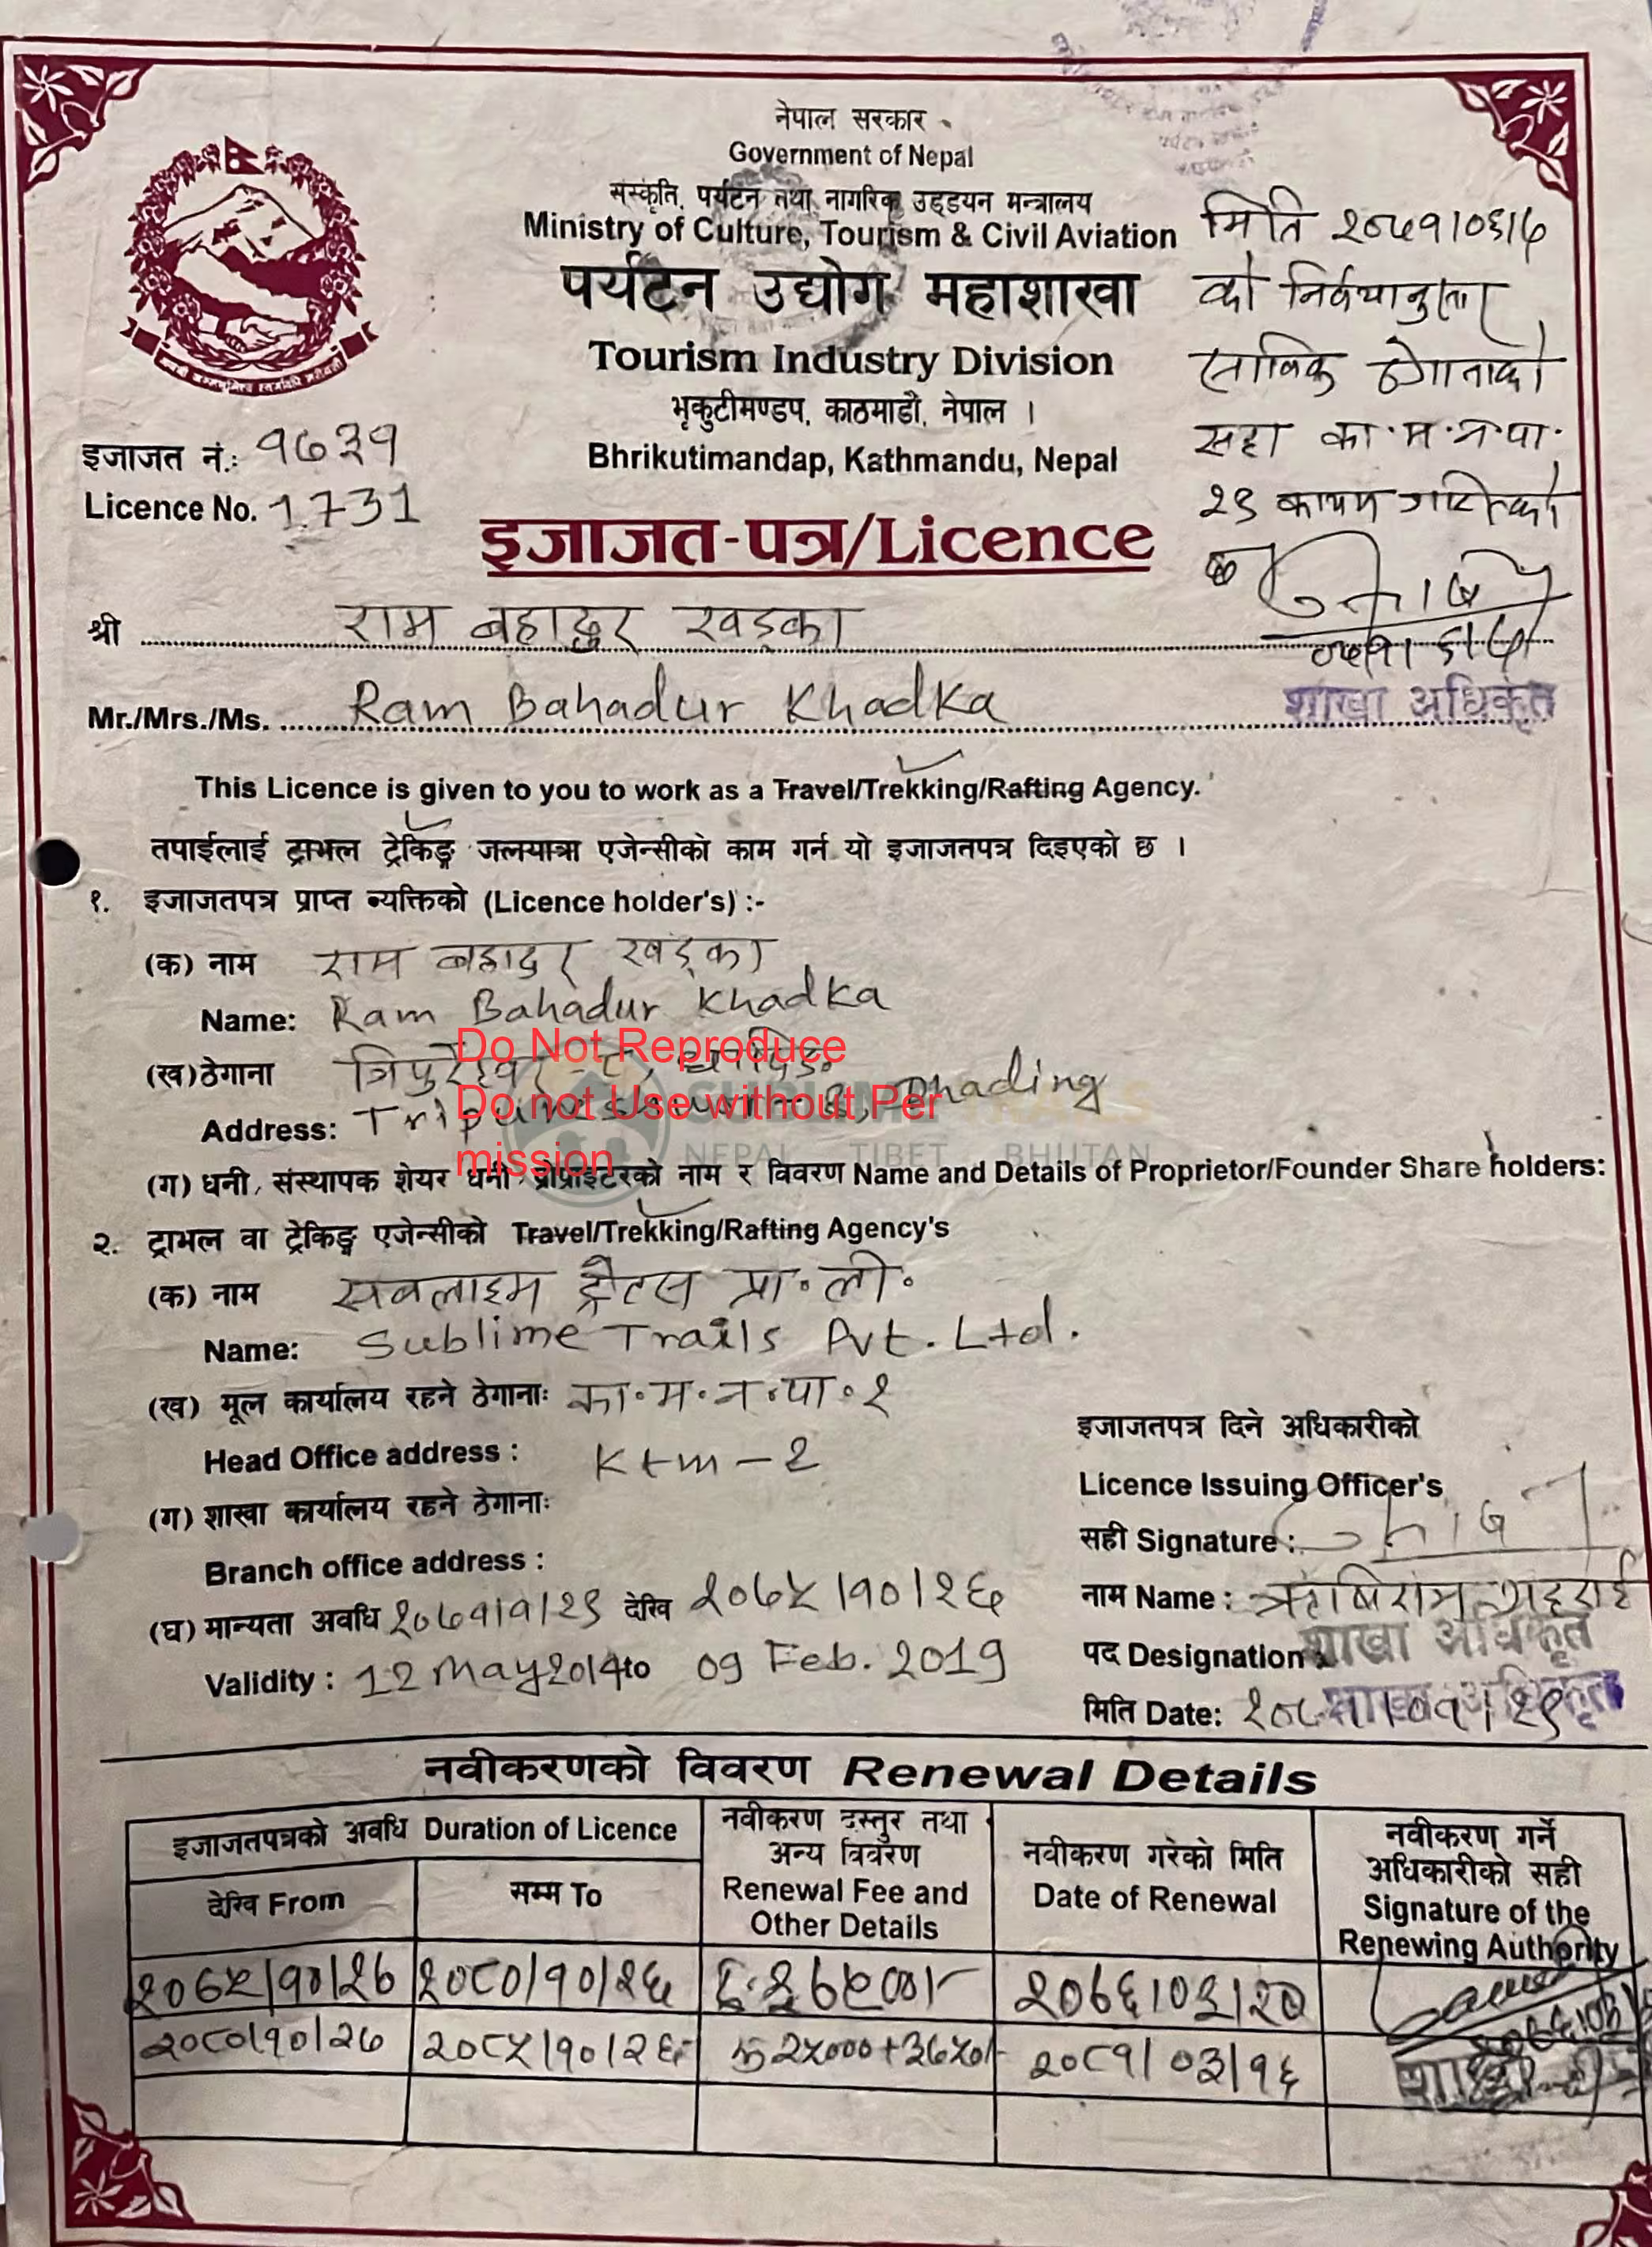 नेपाल सरकार
Government of Nepal
संस्कृति, पर्यटन तथा नागरिक उड्डयन मन्त्रालय
Ministry of Culture, Tourism & Civil Aviation
पर्यटन उद्योग महाशाखा
Tourism Industry Division
भृकुटीमण्डप, काठमाडौं, नेपाल ।
Bhrikutimandap, Kathmandu, Nepal
मिति २०७१।०६।७
को निर्णयानुसार
साविक ठेगानाको
सट्टा का.म.न.पा.
२९ कायम गरिएको
इजाजत नं.: १७३१
Licence No. 1731
इजाजत-पत्र/Licence
श्री राम बहादुर खड्का
Mr./Mrs./Ms. Ram Bahadur Khadka
शाखा अधिकृत
This Licence is given to you to work as a Travel/Trekking/Rafting Agency.
तपाईलाई ट्राभल ट्रेकिङ्ग जलयात्रा एजेन्सीको काम गर्न यो इजाजतपत्र दिइएको छ ।
१. इजाजतपत्र प्राप्त व्यक्तिको (Licence holder's) :-
(क) नाम राम बहादुर खड्का
Name: Ram Bahadur Khadka
Do Not Reproduce
(ख) ठेगाना त्रिपुरेश्वर - ८, धादिङ
Do not Use without Per
mission
Address: Tripureshwar - 8, Dhading
SUBLIME TRAILS
NEPAL TIBET BHUTAN
(ग) धनी, संस्थापक शेयर धनी, प्रोप्राइटरको नाम र विवरण Name and Details of Proprietor/Founder Share holders:
२. ट्राभल वा ट्रेकिङ्ग एजेन्सीको Travel/Trekking/Rafting Agency's
(क) नाम सबलाइम ट्रेल्स प्रा॰ली॰
Name: Sublime Trails Pvt. Ltd.
(ख) मूल कार्यालय रहने ठेगानाः का॰म॰न॰पा॰२
Head Office address : Ktm - 2
(ग) शाखा कार्यालय रहने ठेगानाः
Branch office address :
(घ) मान्यता अवधि २०७१।१।२९ देखि २०७५।१०।२६
Validity : 12 May 2014 to 09 Feb. 2019
इजाजतपत्र दिने अधिकारीको
Licence Issuing Officer's
सही Signature :
नाम Name : ऋषिराम भट्टराई
पद Designation : शाखा अधिकृत
मिति Date: शाखा अधिकृत
नवीकरणको विवरण Renewal Details
इजाजतपत्रको अवधि Duration of Licence
देखि From
सम्म To
नवीकरण दस्तुर तथा
अन्य विवरण
Renewal Fee and
Other Details
नवीकरण गरेको मिति
Date of Renewal
नवीकरण गर्ने
अधिकारीको सही
Signature of the
Renewing Authority
२०७५/१०/२७ २०८०/१०/२६ २०७६/०३/२०
२०८०/१०/२७ २०८५/१०/२६ रु २५०००+३७५०/- २०८१/०३/१६